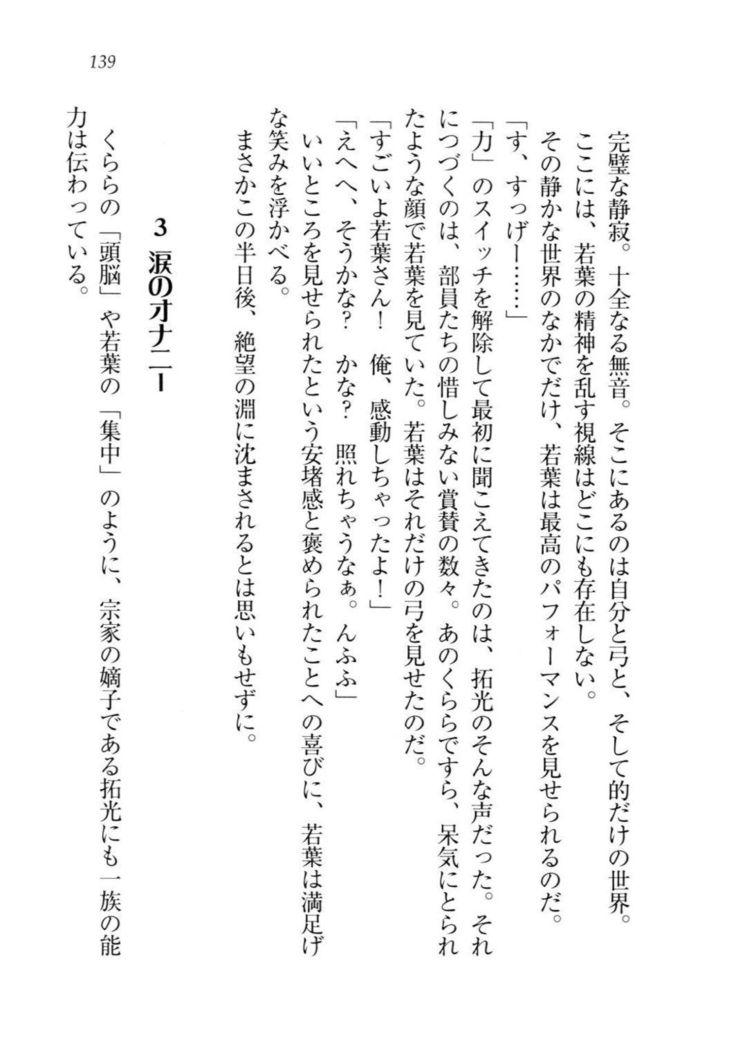 139
完璧な静寂。十全なる無音。そこにあるのは自分と弓と、そして的だけの世界。
ここには、若葉の精神を乱す視線はどこにも存在しない。
その静かな世界のなかでだけ、若葉は最高のパフォーマンスを見せられるのだ。
「す、すっげー……」
「力」のスイッチを解除して最初に聞こえてきたのは、拓光のそんな声だった。それ
につづくのは、部員たちの惜しみない賞賛の数々。あのくららですら、呆気にとられ
たような顔で若葉を見ていた。若葉はそれだけの弓を見せたのだ。
「すごいよ若葉さん！　俺、感動しちゃったよ！」
「えへへ、そうかな？　かな？　照れちゃうなぁ。んふふ」
いいところを見せられたという安堵感と褒められたことへの喜びに、若葉は満足げ
な笑みを浮かべる。
まさかこの半日後、絶望の淵に沈まされるとは思いもせずに。
3 涙のオナニー
くららの「頭脳」や若葉の「集中」のように、宗家の嫡子である拓光にも一族の能
力は伝わっている。